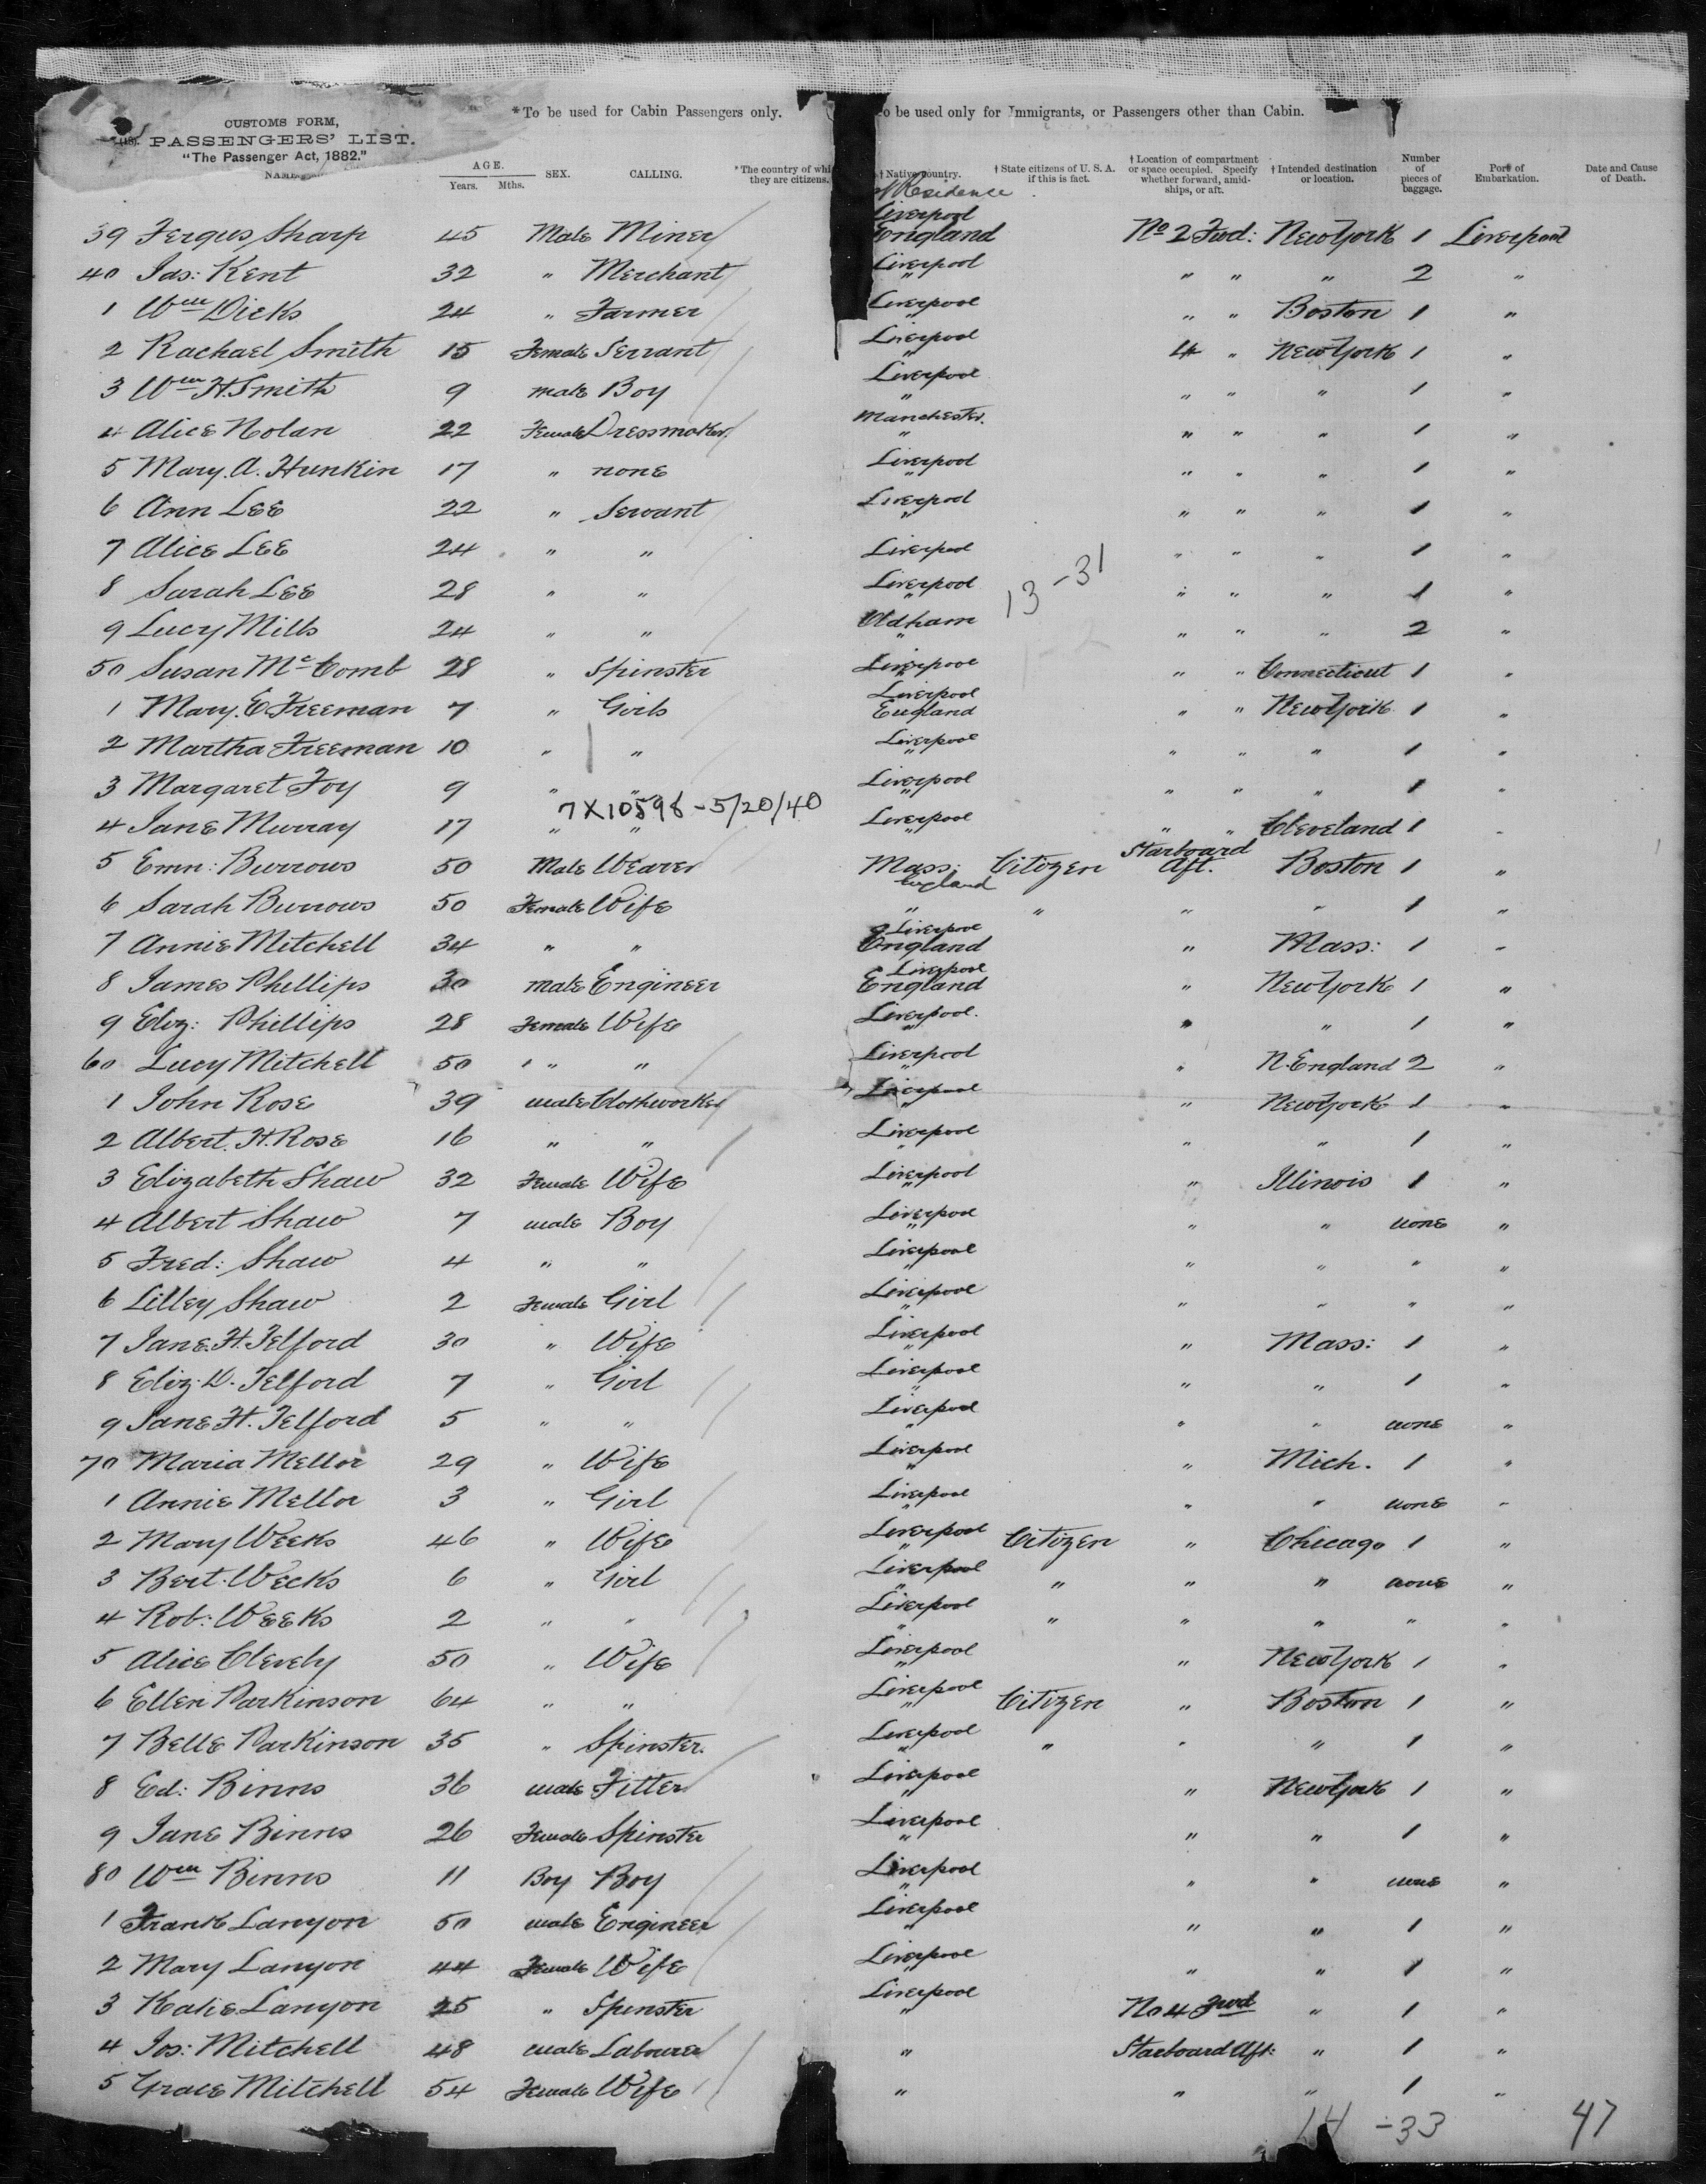 *To be used for Cabin Passengers only.
o be used only for Immigrants, or Passengers other than Cabin.
CUSTOMS FORM,
PASSENGERS' LIST.
"The Passenger Act, 1882."
NAME. AGE. Years. Mths. SEX. CALLING. *The country of whi they are citizens. † Native country. † State citizens of U. S. A. if this is fact. † Location of compartment or space occupied. Specify whether forward, amid-ships, or aft. † Intended destination or location. Number of pieces of baggage. Port of Embarkation. Date and Cause of Death.
Residence
39 Fergus Sharp 45 Male Miner Liverpool England No 2 Fwd: New York 1 Liverpool
40 Jas: Kent 32 " Merchant Liverpool " " " " 2 "
1 Wm Dicks 24 " Farmer Liverpool " " " Boston 1 "
2 Rachael Smith 15 Female Servant Liverpool " 4 " New York 1 "
3 Wm H. Smith 9 male Boy Liverpool " " " " 1 "
4 Alice Nolan 22 Female Dressmaker. Manchester. " " " " 1 "
5 Mary. A. Hunkin 17 " none Liverpool " " " " 1 "
6 Ann Lee 22 " Servant Liverpool " " " " 1 "
7 Alice Lee 24 " " Liverpool " " " 1 "
13 - 31
8 Sarah Lee 28 " " Liverpool " " " " 1 "
9 Lucy Mills 24 " " Oldham " " " " 2 "
50 Susan McComb 28 " Spinster Liverpool " " " Connecticut 1 "
1 Mary. E Freeman 7 " Girls Liverpool England " " New York 1 "
2 Martha Freeman 10 " " Liverpool " " " " 1 "
3 Margaret Foy 9 " " Liverpool " " " " 1 "
7X10598 - 5/20/40
4 Jane Murray 17 " " Liverpool " " " Cleveland 1 "
5 Emn: Burrows 50 Male Weaver Mass: England Citizen Starboard Aft. Boston 1 "
6 Sarah Burrows 50 Female Wife " " " " 1 "
7 Annie Mitchell 34 " " Liverpool England " Mass: 1 "
8 James Phillips 30 male Engineer Liverpool England " New York 1 "
9 Eliz: Phillips 28 Female Wife Liverpool. " " " 1 "
60 Lucy Mitchell 50 " " Liverpool " " N. England 2 "
1 John Rose 39 male Clothworker Liverpool " " New York 1 "
2 Albert. H. Rose 16 " " Liverpool " " " 1 "
3 Elizabeth Shaw 32 Female Wife Liverpool " " Illinois 1 "
4 Albert Shaw 7 male Boy Liverpool " " " none "
5 Fred: Shaw 4 " " Liverpool " " " " "
6 Lilley Shaw 2 Female Girl Liverpool " " " " "
7 Jane. H. Telford 30 " Wife Liverpool " " Mass: 1 "
8 Eliz. D. Telford 7 " Girl Liverpool " " " 1 "
9 Jane H. Telford 5 " " Liverpool " " " none "
70 Maria Mellor 29 " Wife Liverpool " " Mich. 1 "
1 Annie Mellor 3 " Girl Liverpool " " " none "
2 Mary Weeks 46 " Wife Liverpool " Citizen " Chicago 1 "
3 Bert. Weeks 6 " Girl Liverpool " " " " none "
4 Rob: Weeks 2 " " Liverpool " " " " " "
5 Alice Cleverly 50 " Wife Liverpool " " New York 1 "
6 Ellen Parkinson 64 " " Liverpool " Citizen " Boston 1 "
7 Belle Parkinson 35 " Spinster. Liverpool " " " " 1 "
8 Ed: Binns 36 male Fitter Liverpool " " New York 1 "
9 Jane Binns 26 Female Spinster Liverpool " " " 1 "
80 Wm Binns 11 Boy Boy Liverpool " " " none "
1 Frank Lanyon 50 male Engineer Liverpool " " " 1 "
2 Mary Lanyon 44 Female Wife Liverpool " " " 1 "
3 Katie. Lanyon 25 " Spinster Liverpool " No 4 Fwd " 1 "
4 Jos: Mitchell 48 male Labourer " Starboard Aft: " 1 "
5 Grace Mitchell 54 Female Wife " " " 1 "
14 - 33 47